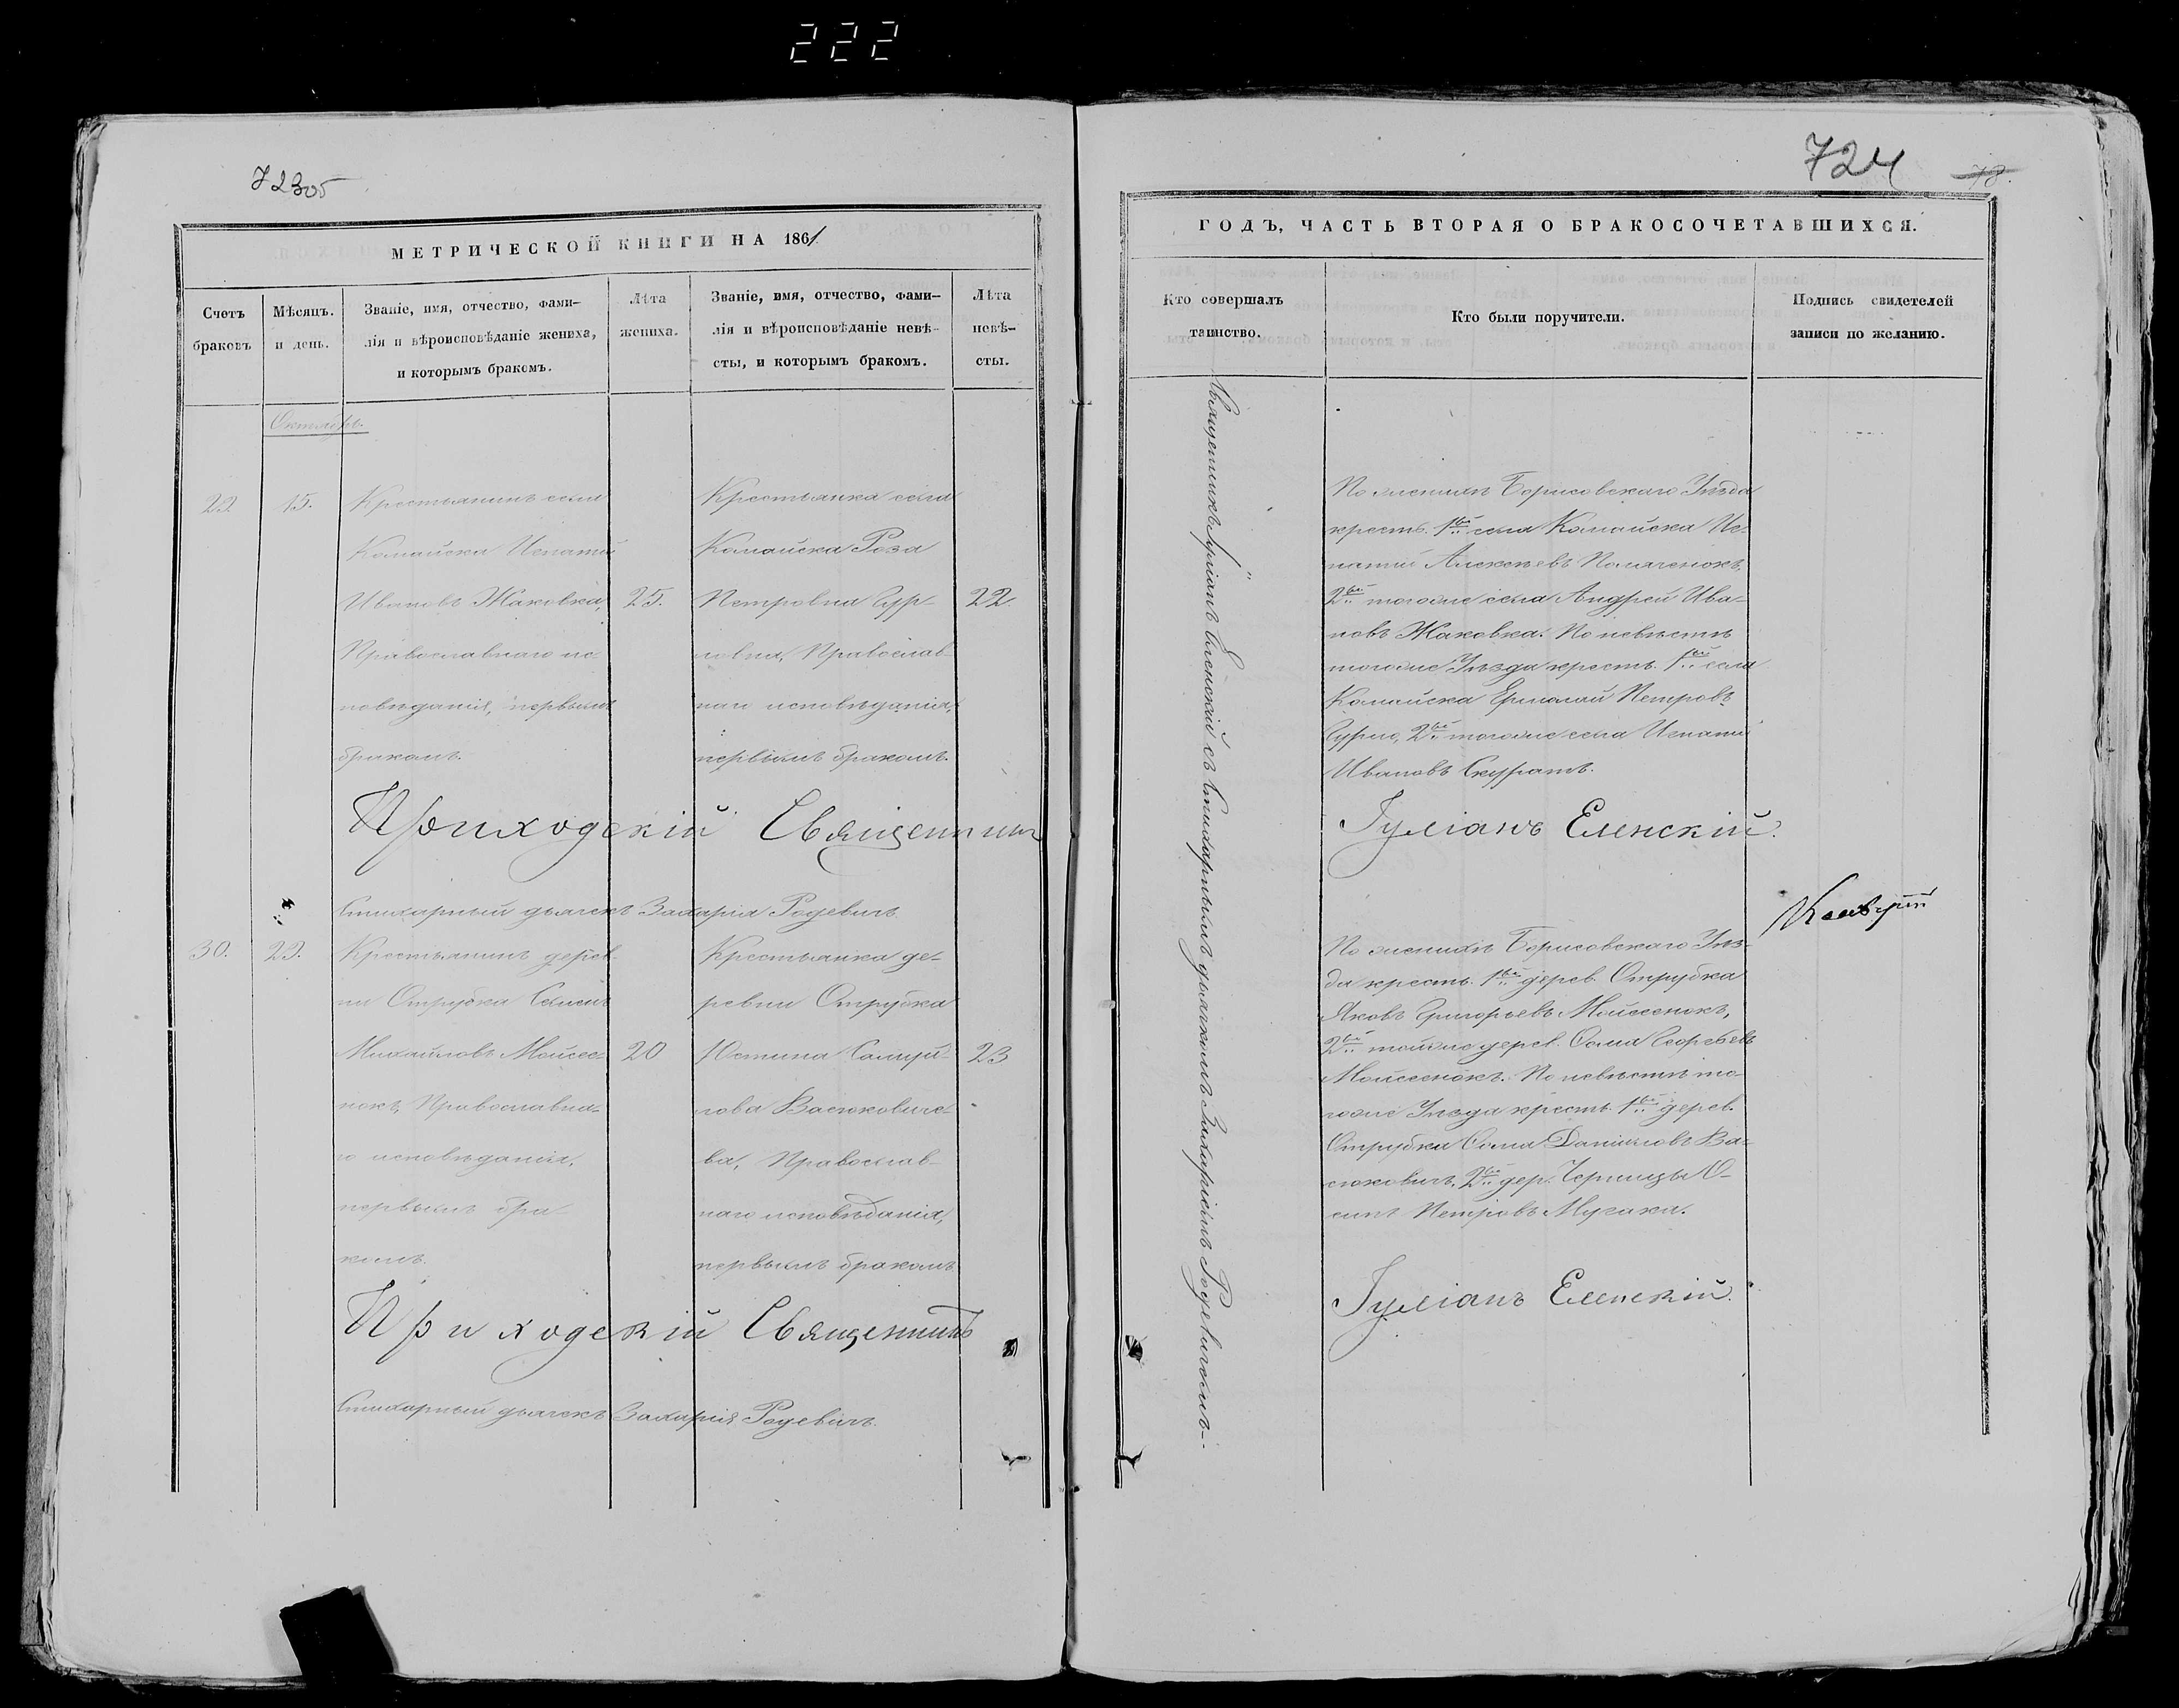 222
723об
МЕТРИЧЕСКОЙ КНИГИ НА 1861
Счетъ
браковъ
Мѣсяцъ.
и день.
Званіе, имя, отчество, фами-
лія и вѣроисповѣданіе жениха,
и которымъ бракомъ.
Лѣта
жениха.
Званіе, имя, отчество, фами-
лія и вѣроисповѣданіе невѣ-
сты, и которымъ бракомъ.
Лѣта
невѣ-
сты.
Октябрь.
29.
15.
Крестьянинъ села
Комайска Игнатій
Ивановъ Жаковка,
Православнаго ис-
повѣданія, первымъ
бракомъ.
25.
Крестьянка села
Комайска Роза
Петровна Гур-
новна, Православ-
наго исповѣданія,
первымъ бракомъ.
22.
Приходскій Священникъ
Стихарный дьячекъ Захарія Родевичъ.
30.
29.
Крестьянинъ дерев-
ни Отрубка Семенъ
Михайловъ Моисее-
нокъ, Православна-
го исповѣданія,
первымъ бра-
комъ.
20
Крестьянка де-
ревни Отрубка
Юстина Самуй-
лова Васюковиче-
ва, Православ-
наго исповѣданія,
первымъ бракомъ
23
Приходскій Священникъ
Стихарный дьячекъ Захарія Родевичъ.
724
78.
ГОДЪ, ЧАСТЬ ВТОРАЯ О БРАКОСОЧЕТАВШИХСЯ.
Кто совершалъ
таинство.
Кто были поручители.
Подпись свидетелей
записи по желанію.
Священникъ Іуліанъ Еленскій съ Стихарнымъ дьячкомъ Захаріемъ Родевичемъ.
По женихѣ Борисовскаго Уѣзда
крестъ. 1ый села Комайска Иг-
натій Алексѣевъ Полаченокъ,
2ый тогоже села Андрей Ива-
новъ Жаковка. По невѣстѣ
тогоже Уѣзда крестъ. 1ый села
Комайска Ермолай Петровъ
Гурно, 2ый тогоже села Игнатій
Ивановъ Скуратъ.
Іуліанъ Еленскій.
По женихѣ Борисовскаго Уѣз-
да крестъ. 1ый дерев. Отрубка
Яковъ Григорьевъ Моисеенокъ,
2ый тойже дерев. Ѳома Георгіевъ
Моисеенокъ. По невѣстѣ то-
гоже Уѣзда крестъ. 1ый дерев.
Отрубка Ѳома Даніиловъ Ва-
сюковичъ, 2ый дер. Черницы О-
сипъ Петровъ Мугака.
Іуліанъ Еленскій.